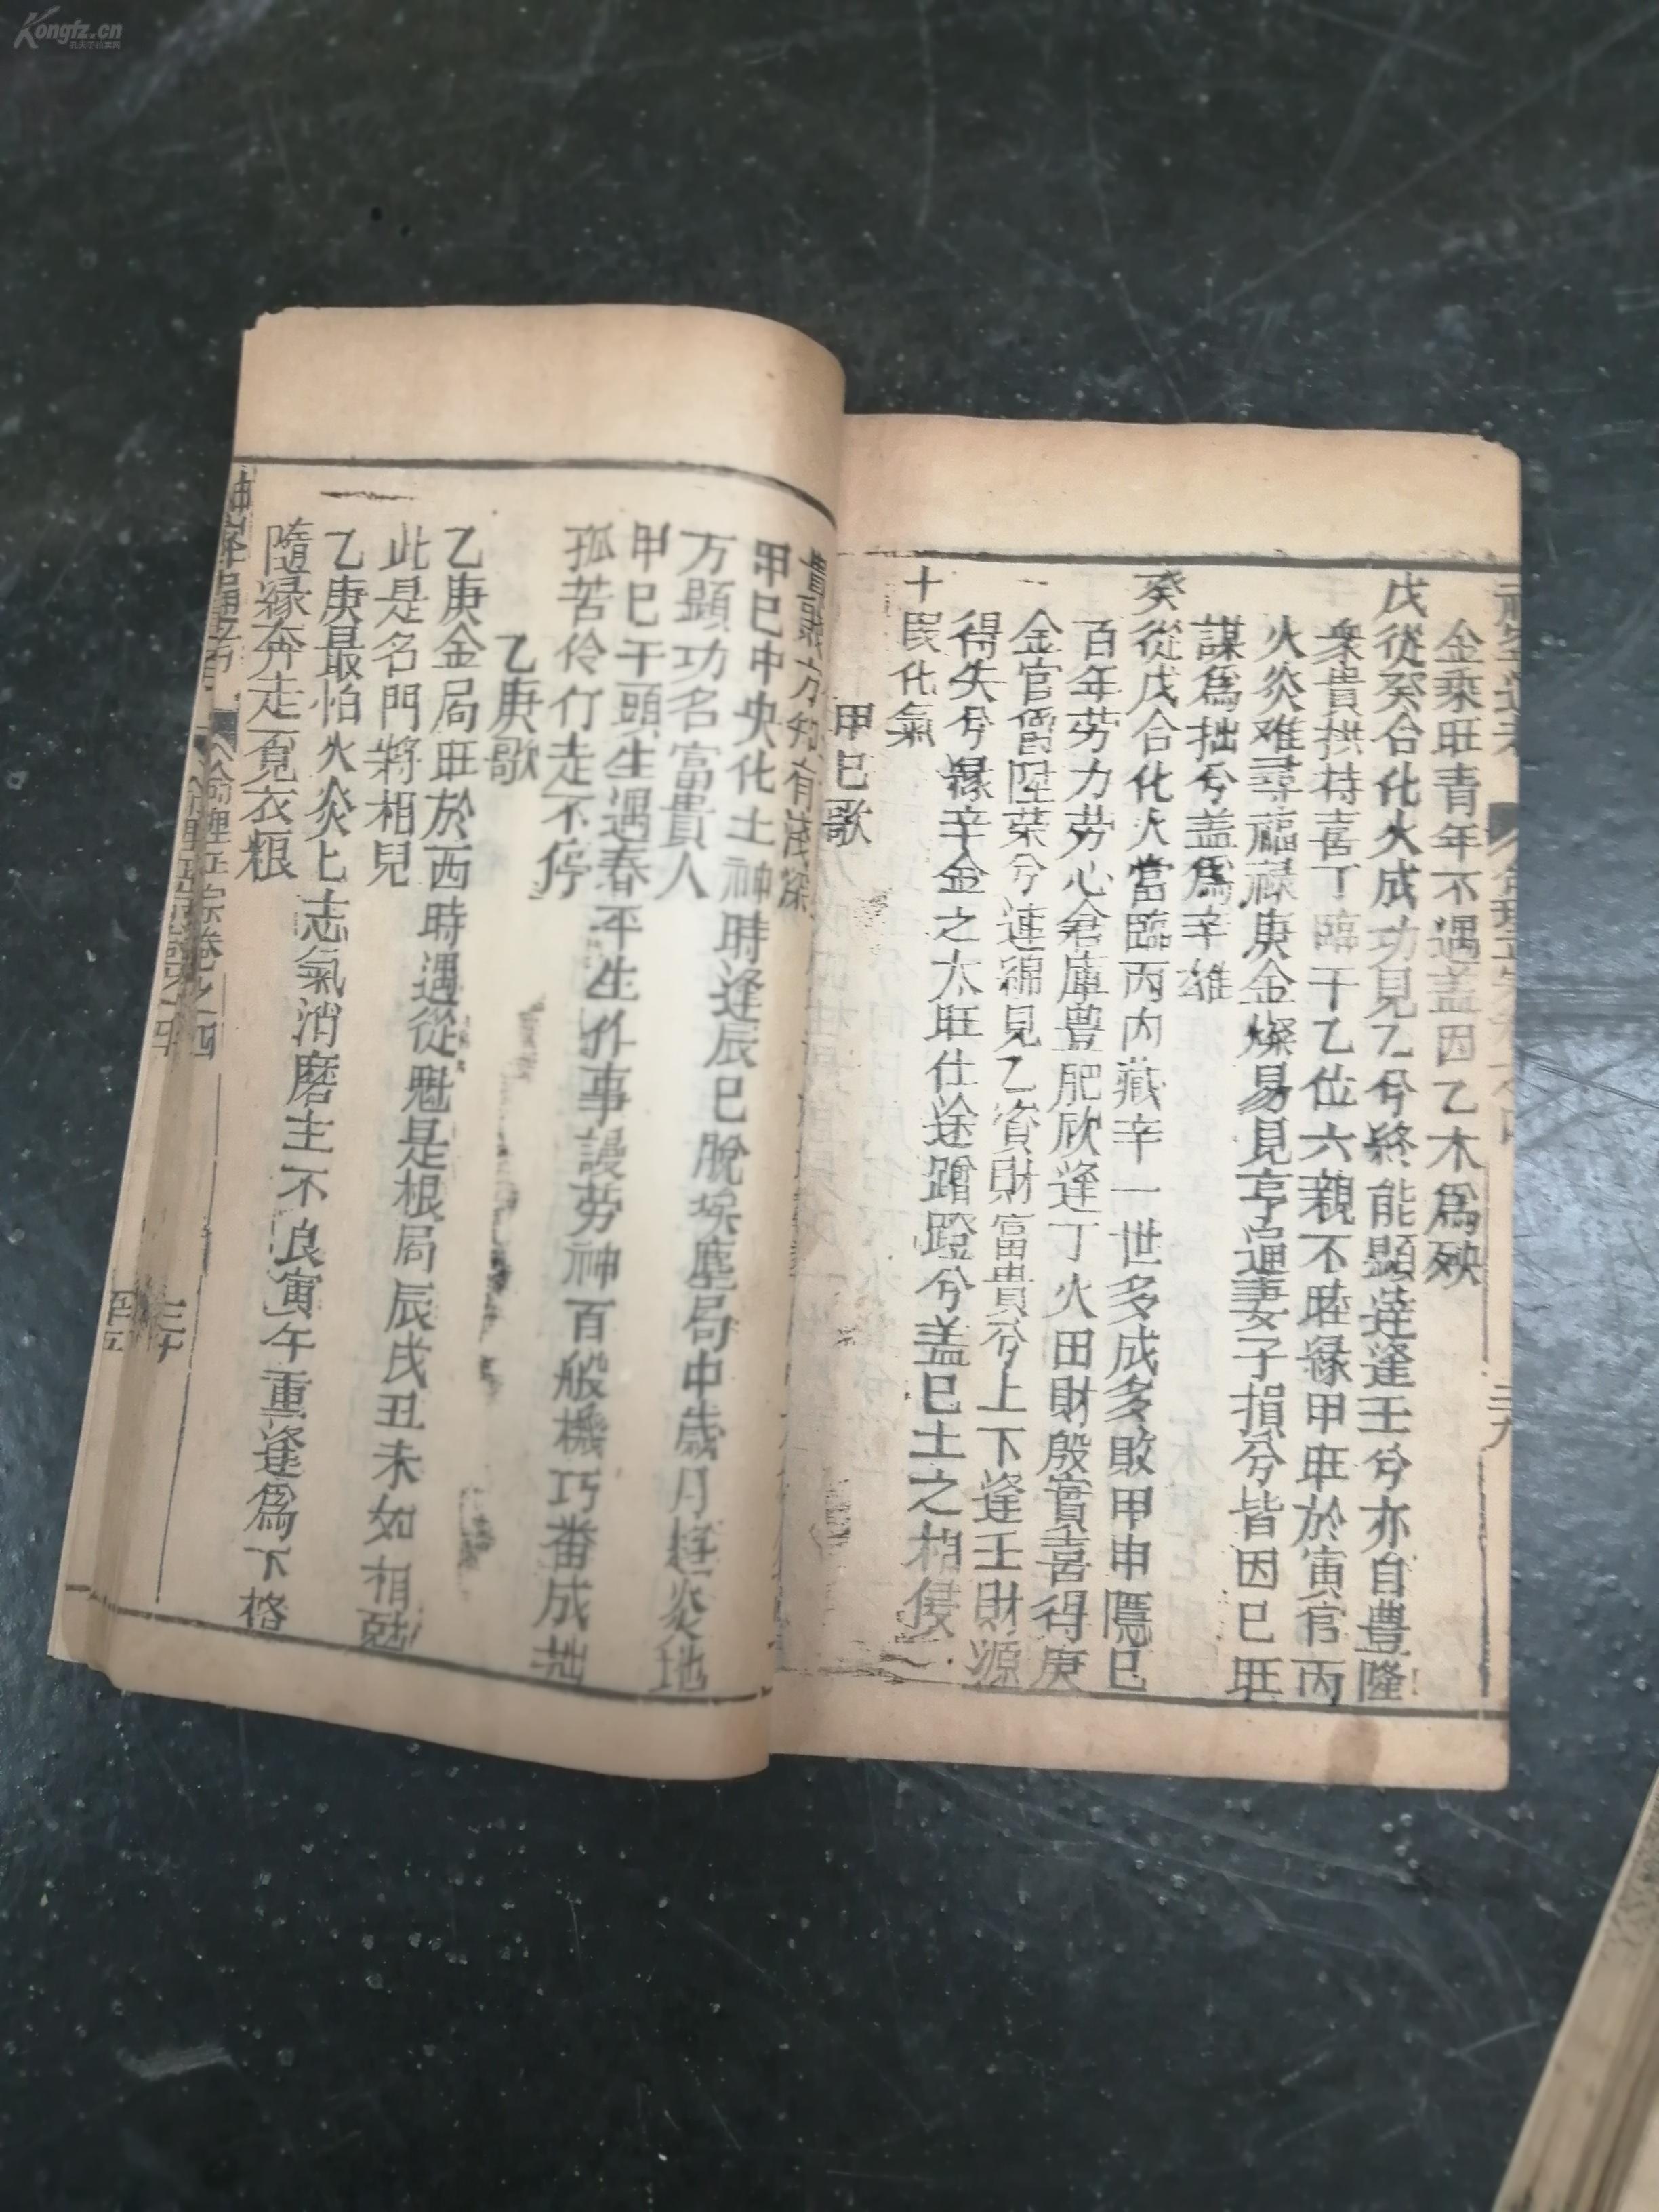 Kongfz.cn
金乘旺青年不遇盖因乙木爲殃
戊從癸合化火成功見乙兮終能顕達逢壬兮亦自豊隆
衆貴拱持喜丁臨干乙位六親不睦縁甲旺於寅官丙
火炎难尋福禄庚金燥易見亨通妻子損兮皆因巳旺
謀爲拙兮盖爲辛雄
癸從戊合化火當臨丙内藏辛一世多成多敗甲申隱巳
百年劳力劳心倉庫豊肥欣逢丁火田財殷實喜得庚
金官爵陞荣兮連綿見乙資財富貴兮上下逢壬財源
得失兮縁辛金之太旺仕途蹭蹬兮盖巳土之相侵
十叚化氣
甲巳歌
貴 方知有淺深
甲巳中央化土神時逢辰巳脫埃塵局中歲月趋炎地
方顕功名富貴人
甲巳干頭生遇春平生作事謾劳神百般機巧番成拙
孤苦伶仃走不停
乙庚歌
乙庚金局旺於西時遇從魁是根局辰戌丑未如相
此是名門將相兒
乙庚最怕火炎上志氣消磨主不良寅午重逢爲下格
隨縁奔走覓衣粮
命理正宗卷之四
三十
三九